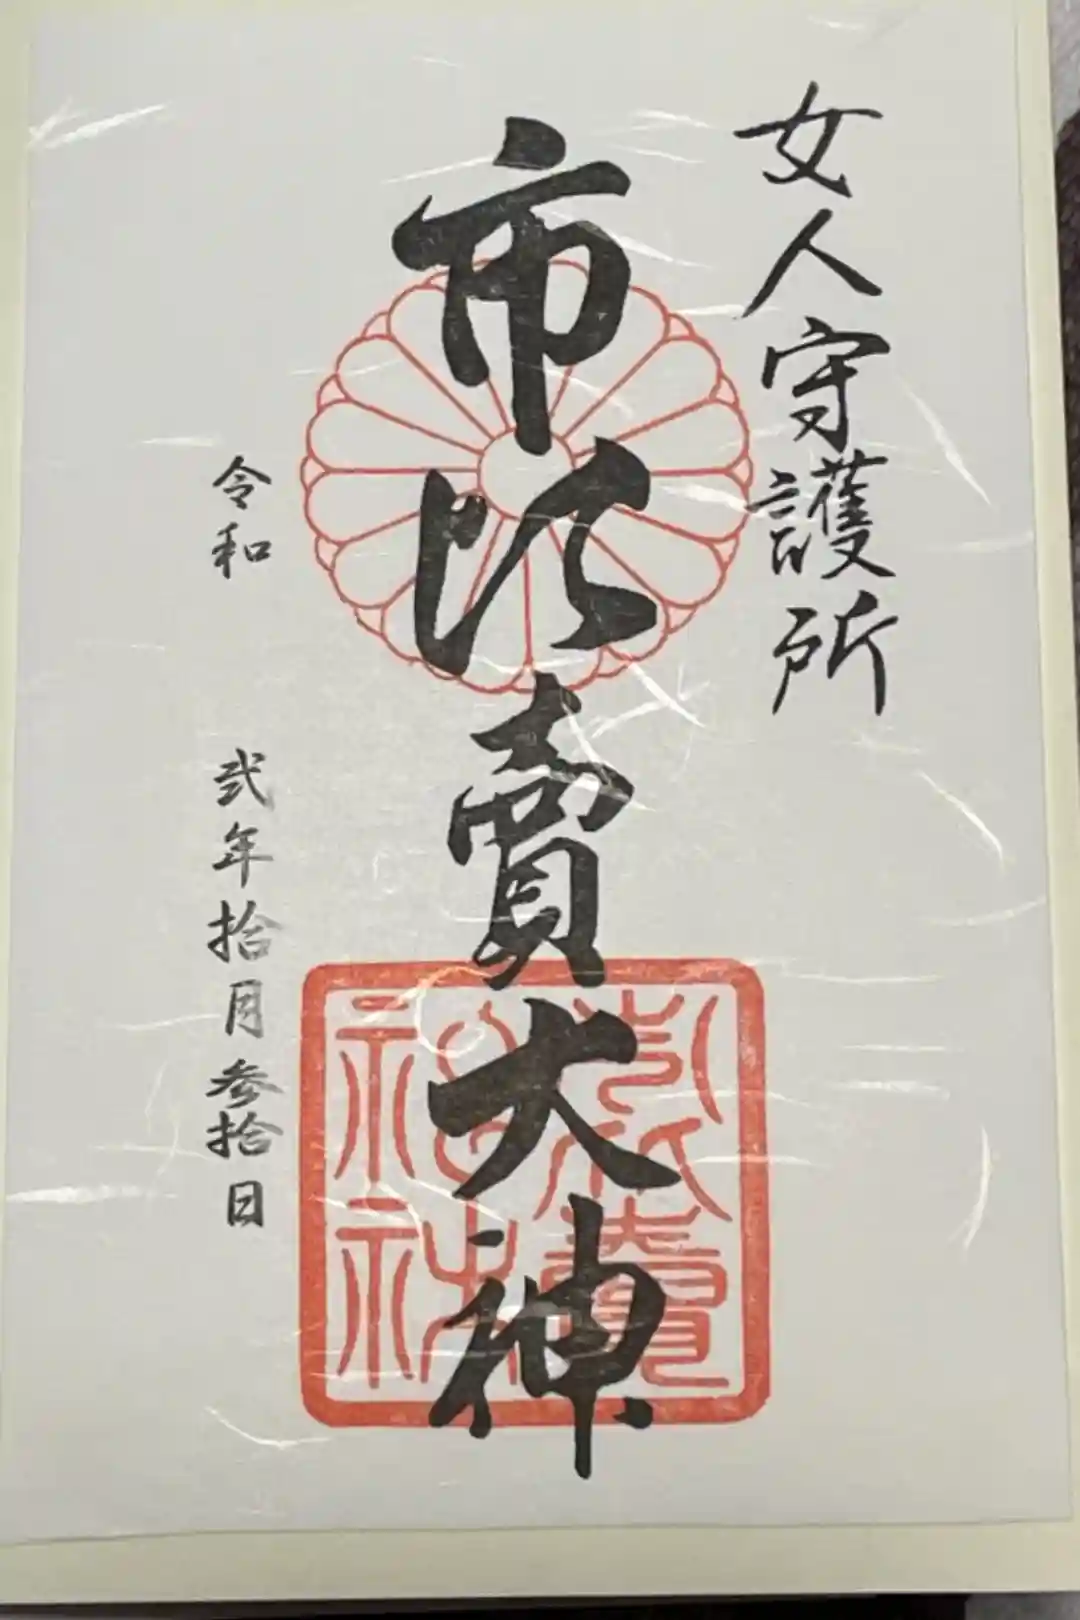 女人守護所
市比賣大神
令和 弐年拾月参拾日
市比賣神社